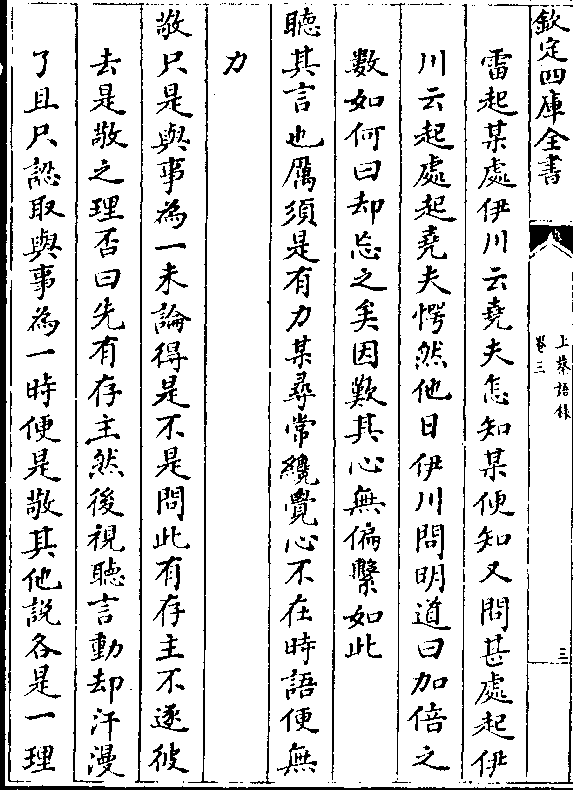 欽定四庫全書
上蔡語録
卷三
三
雷起某處伊川云堯夫怎知某便知又問甚處起伊
川云起處起堯夫愕然他日伊川問明道曰加倍之
數如何曰却忘之矣因歎其心無偏繫如此
聽其言也厲須是有力某尋常纔覺心不在時語便無
力
敬只是與事為一未論得是不是問此有存主不逐彼
去是敬之理否曰先有存主然後視聽言動却汗漫
了且只認取與事為一時便是敬其他説各是一理